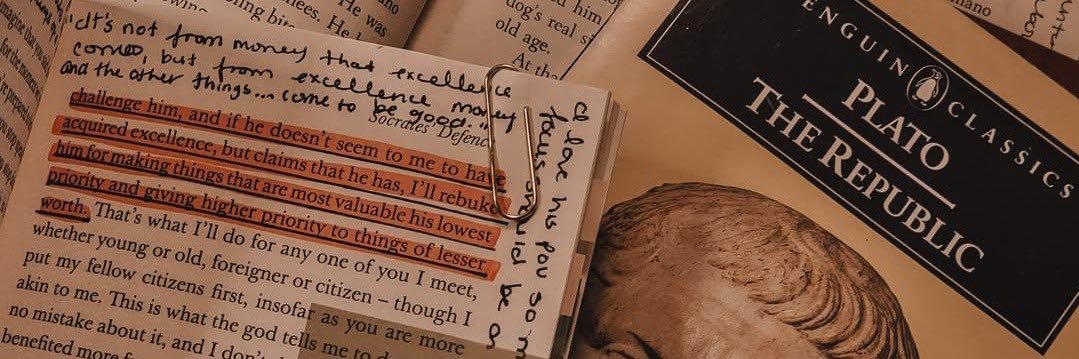 nees. He was
He
him
dog's real
old age.
At the
"It's not from money that excellence
comes, but from excellence money
and the other things... come to be good..."
Socrates' Defence
challenge him, and if he doesn't seem to me to have
acquired excellence, but claims that he has, I'll rebuke
him for making things that are most valuable his lowest
priority and giving higher priority to things of lesser
worth. That's what I'll do for any one of you I meet,
whether young or old, foreigner or citizen – though I
put my fellow citizens first, insofar as you are more
akin to me. This is what the god tells me to
no mistake about it, and I don't
benefited more
I love his
focus on
be
so
PENGUIN CLASSICS
PLATO
THE REPUBLIC